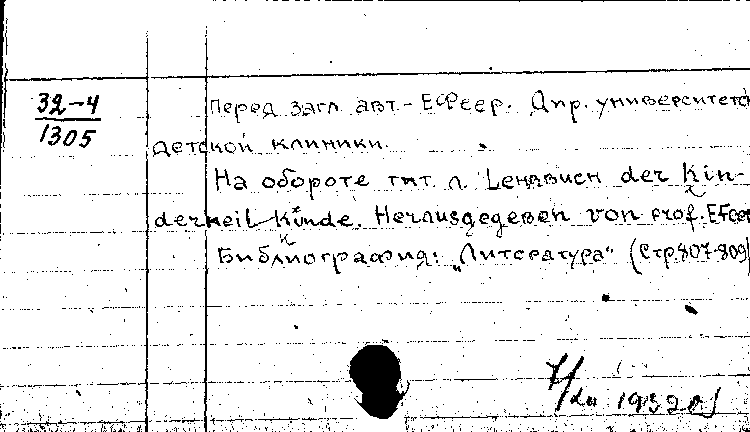 32-4
1305
Перед загл. авт.- Е Феер. Дир. университетс
детской клиники.
На обороте тит л. Lehrbuch der Kin-
derheilkunde. Herausgegeben von Prof. E Feer
Библиография: „Литература" (Стр. 807-809)